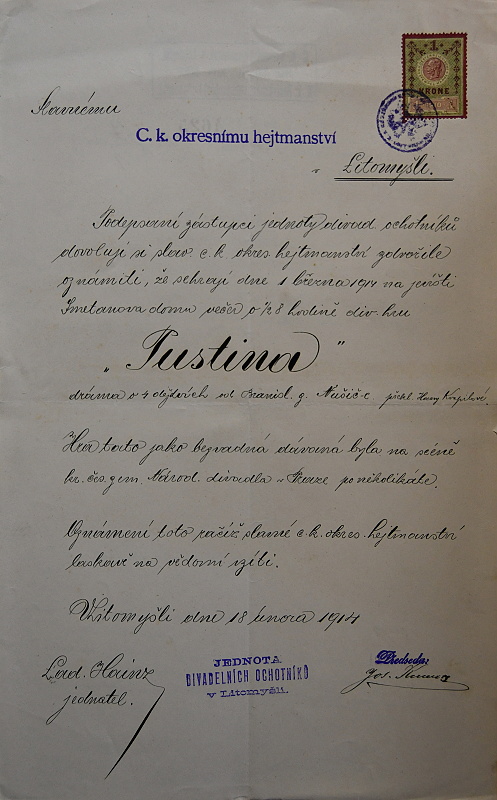 1
KRONE
Slavnému
C. k. okresnímu hejtmanství
v
Litomyšli.
Podepsaní zástupci jednoty divad. ochotníků
dovolují si slav. c. k. okres. hejtmanství zdvořile
oznámiti, že sehrají dne 1 března 1914 na jevišti
Smetanova domu večer o ½8 hodině div. hru
„Pustina"
dráma o 4 dějstvích od Branisl. g. Nušić-e přel.
Hra tato jako bezvadná dávána byla na scéně
kr. čes. zem. Národ. divadla v Praze po několikáte.
Oznámení toto račiž slavné c. k. okres. hejtmanství
laskavě na vědomí vzíti.
V Litomyšli dne 18 února 1914
Lad. Hainz
jednatel.
JEDNOTA
DIVADELNÍCH OCHOTNÍKŮ
v Litomyšli.
Předseda:
Jos.